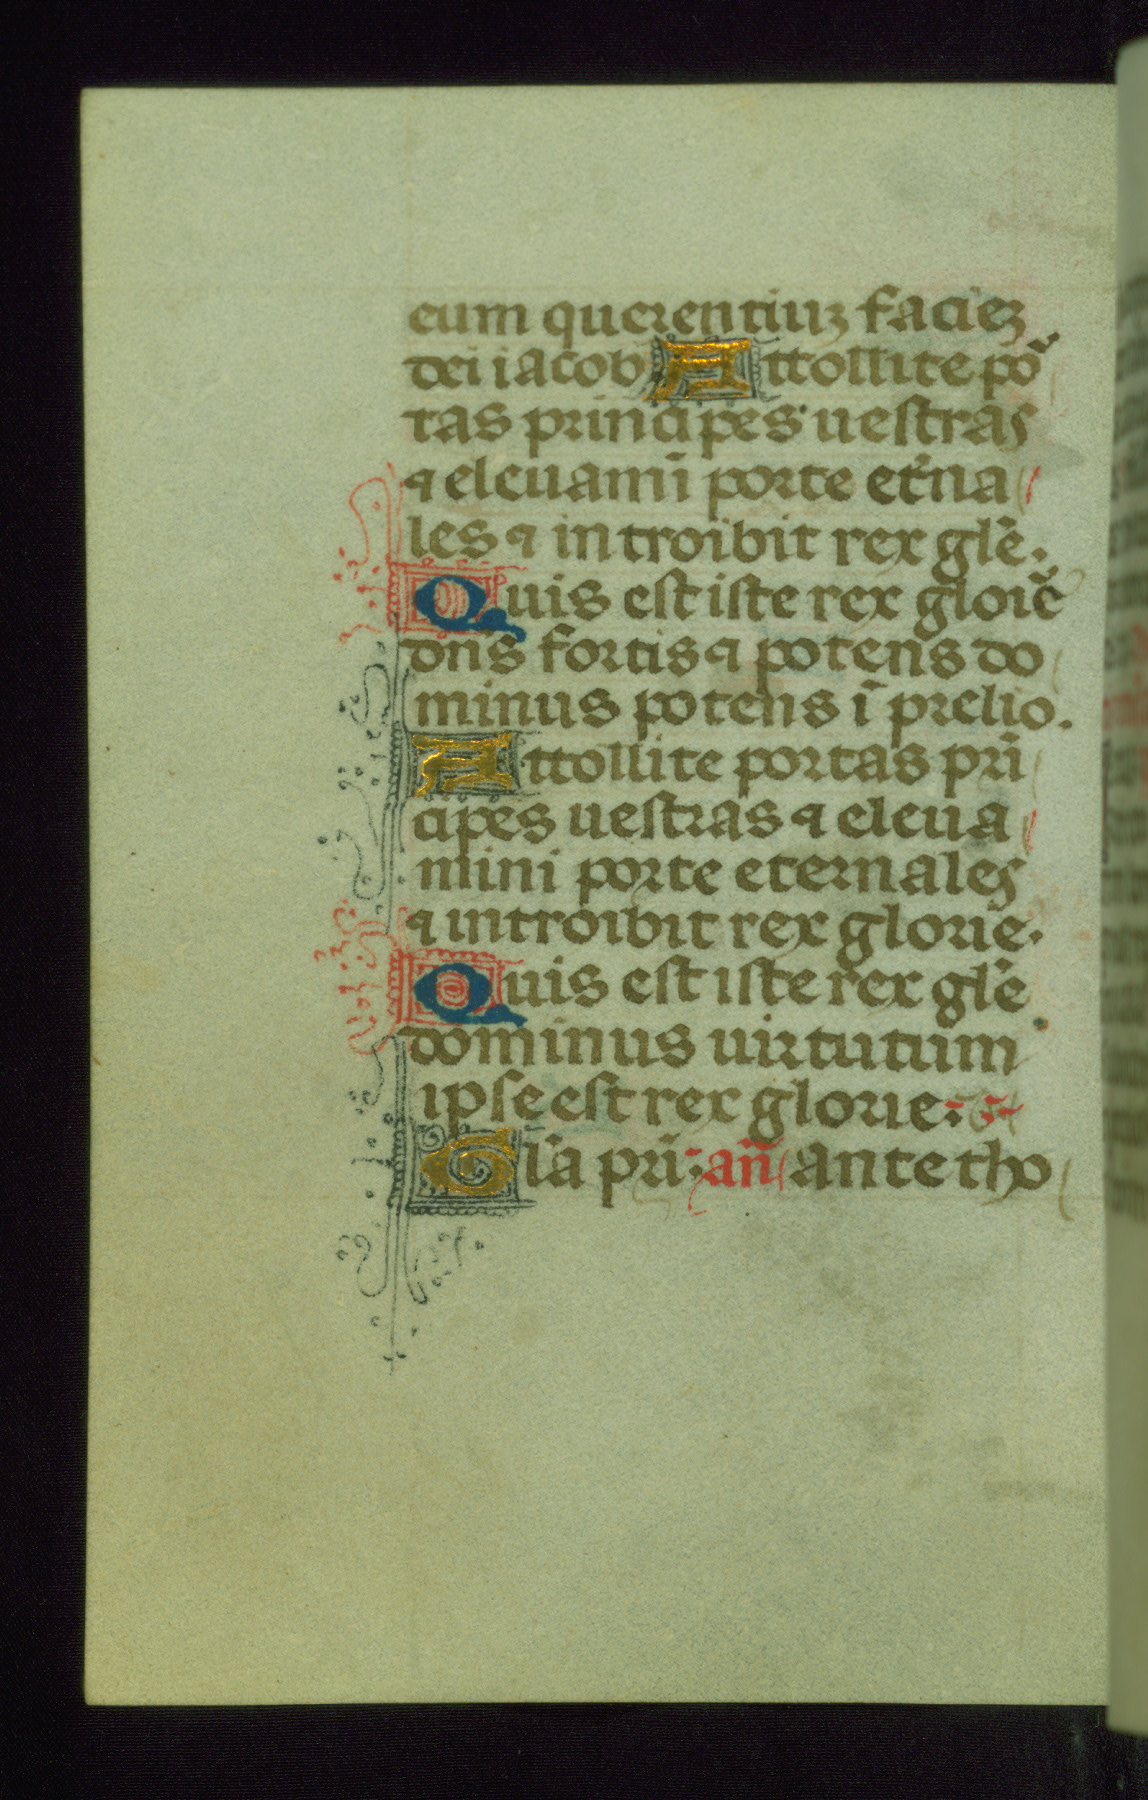 eum querentiuȝ facieȝ
dei iacob Attollite por̃
tas principes uestras
⁊ eleuamĩ porte et̃na
les ⁊ introibit rex glẽ.
Quis est iste rex gloiẽ
dñs fortis ⁊ potens do
minus potens ĩ prelio.
Attollite portas prĩ
cipes uestras ⁊ eleua
mini porte eternales
⁊ introibit rex glorie.
Quis est iste rex glẽ
dominus uirtutum
ipse est rex glorie.
Gl̃a pr̃i. añ ante tho